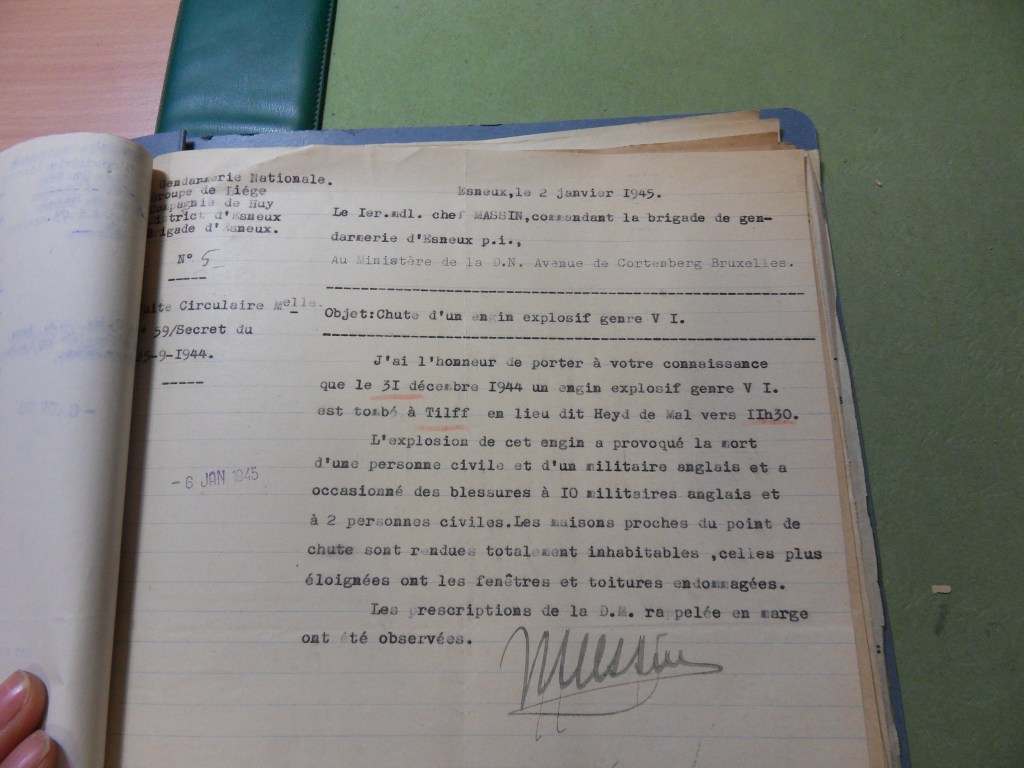 Gendarmerie Nationale.
Groupe de Liége
Compagnie de Huy
District d'Esneux
Brigade d'Esneux.
N° 5
-----
Suite Circulaire Melle.
59/Secret du
-9-1944.
-----
- 6 JAN 1945
Esneux,le 2 janvier 1945.
Le Ier.mdl. chef MASSIN,commandant la brigade de gen-
darmerie d'Esneux p.i.,
Au Ministère de la D.N. Avenue de Cortenberg Bruxelles.
Objet:Chute d'un engin explosif genre V I.
J'ai l'honneur de porter à votre connaissance
que le 3I décembre I944 un engin explosif genre V I.
est tombé à Tilff en lieu dit Heyd de Mal vers IIh30.
L'explosion de cet engin a provoqué la mort
d'une personne civile et d'un militaire anglais et a
occasionné des blessures à IO militaires anglais et
à 2 personnes civiles.Les maisons proches du point de
chute sont rendues totalement inhabitables ,celles plus
éloignées ont les fenêtres et toitures endommagées.
Les prescriptions de la D.M. ra pelée en marge
ont été observées.
Massin